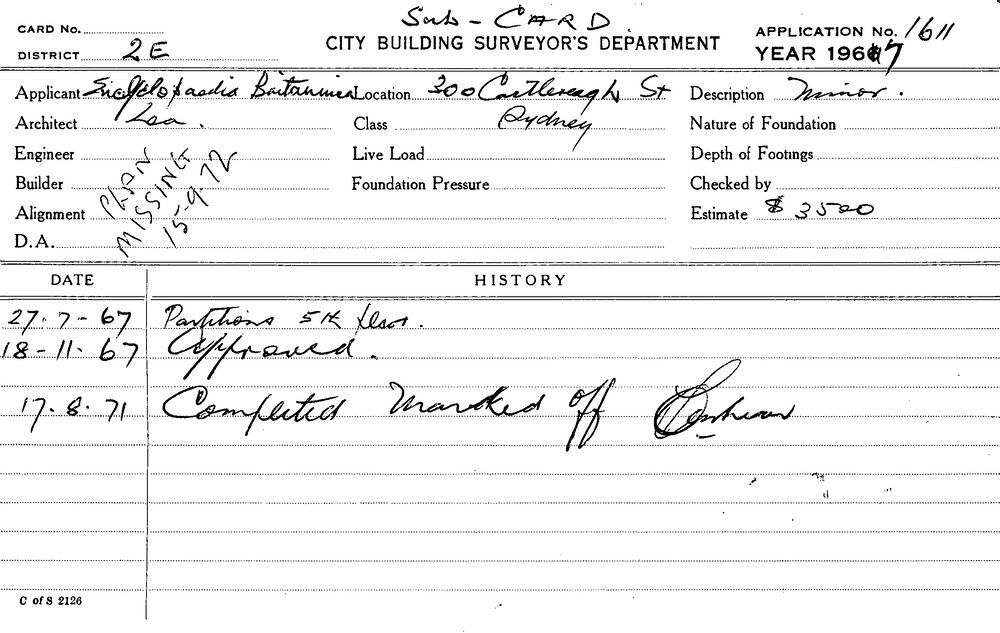 Sub-CARD
CARD No.
CITY BUILDING SURVEYOR'S DEPARTMENT
APPLICATION No. 1611
DISTRICT 2E
YEAR 1967
Applicant Encyclopaedia Britannica Location 300 Castlereagh St Description Minor.
Architect Class Sydney Nature of Foundation
Engineer Live Load Depth of Footings
Builder Foundation Pressure Checked by
Alignment Estimate $ 3500
D.A.
PLAN
MISSING
15-9-72
DATE HISTORY
27.7-67 Partitions 5th floor.
18-11-67 Approved.
17.8.71 Completed Marked off
C of S 2126